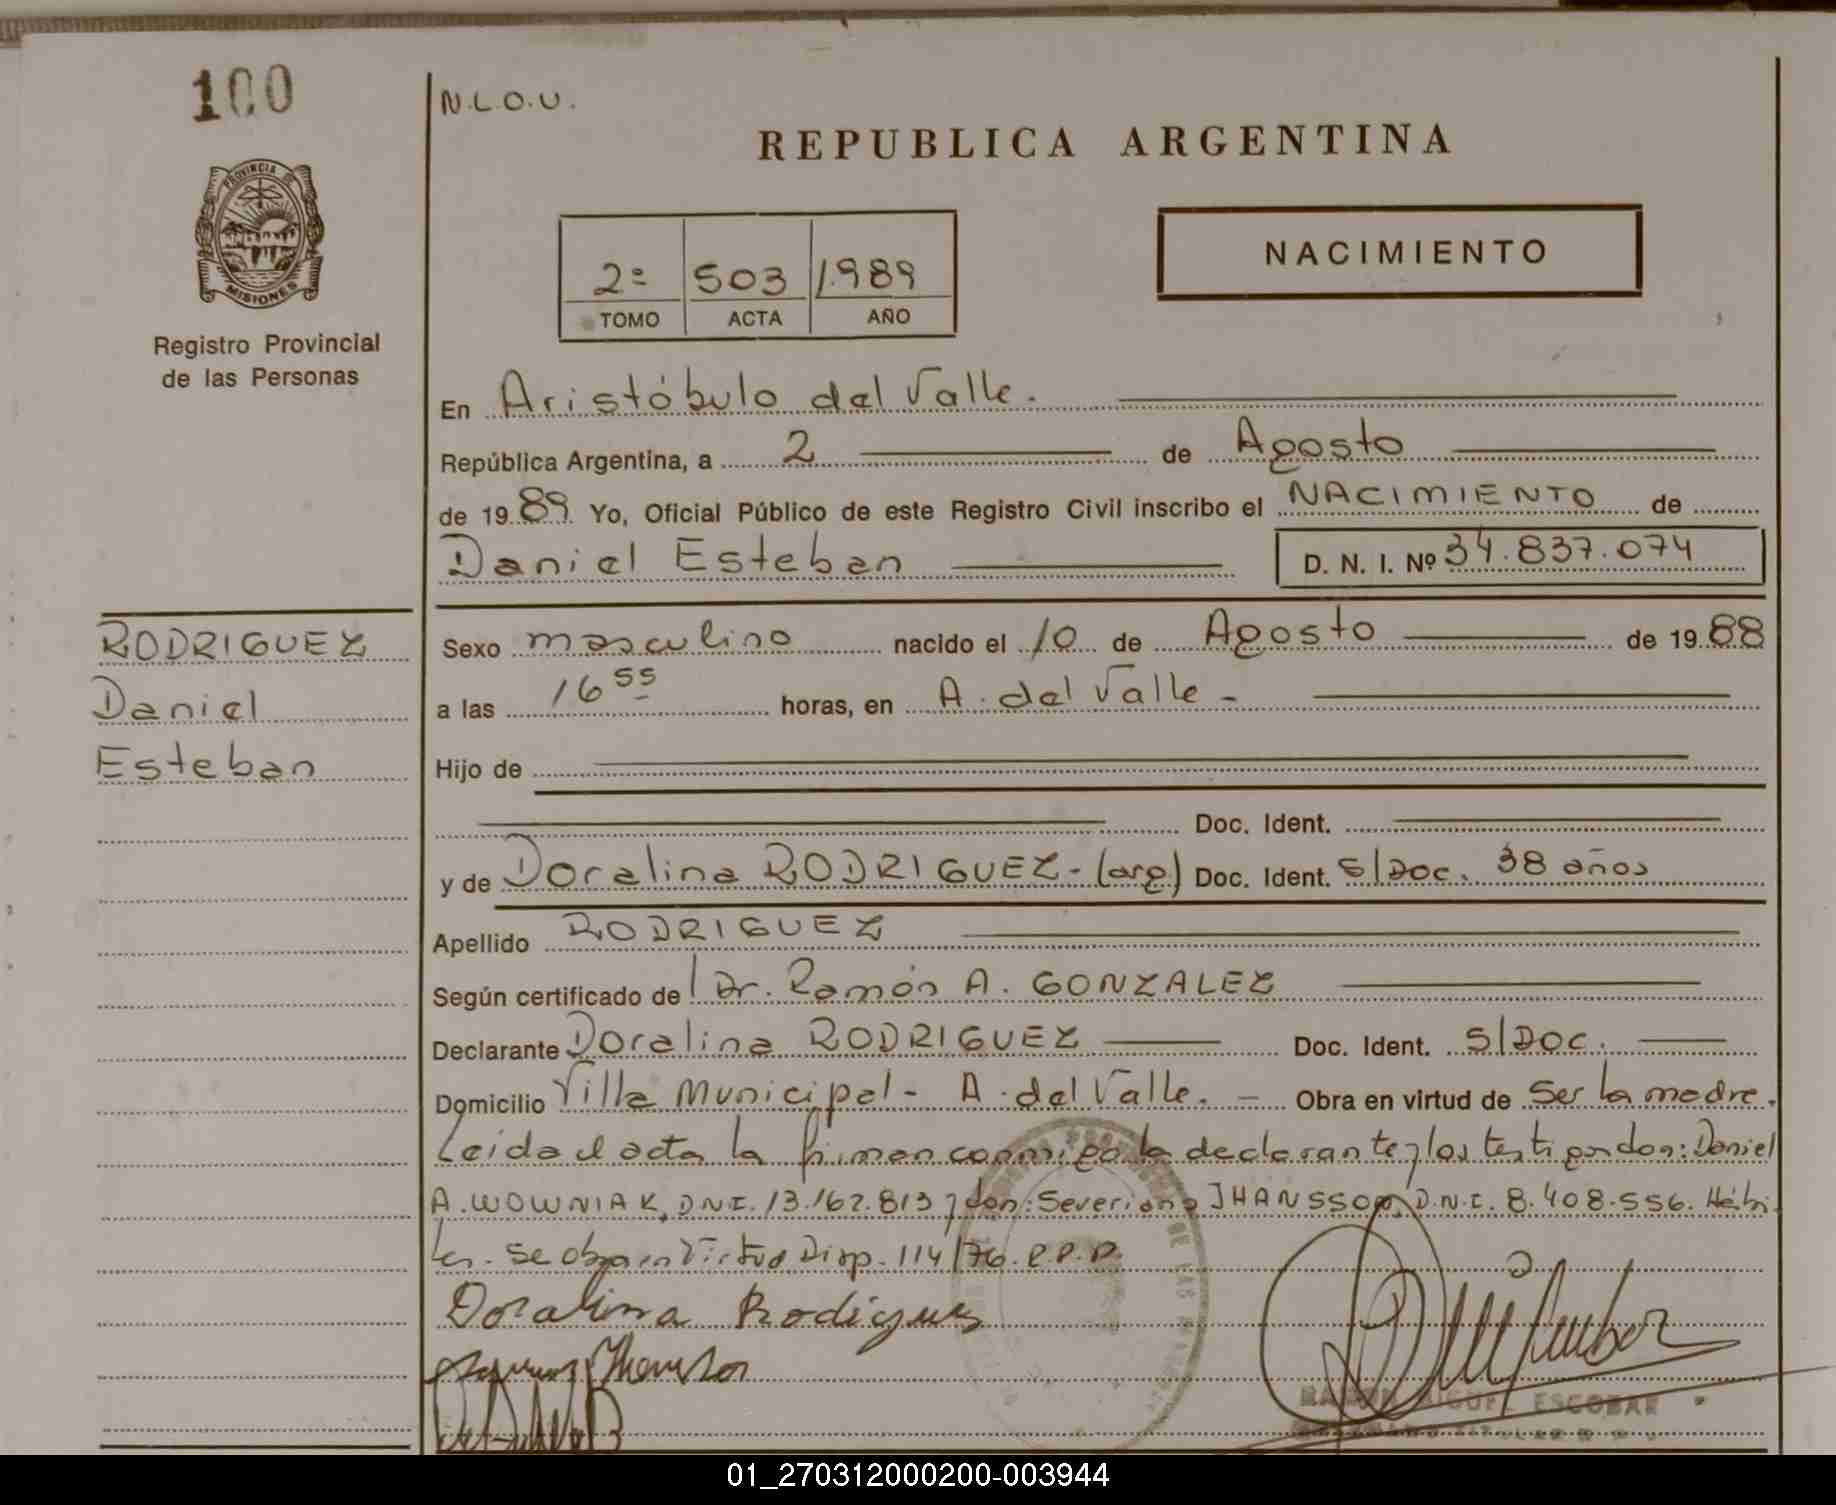 100
N.L.O.U.
REPUBLICA ARGENTINA
PROVINCIA DE
MISIONES
Registro Provincial
de las Personas
2º 503 1.989
TOMO ACTA AÑO
NACIMIENTO
En Aristóbulo del Valle.
República Argentina, a 2 de Agosto
de 1989 Yo, Oficial Público de este Registro Civil inscribo el NACIMIENTO de
Daniel Esteban D. N. I. Nº 34.837.074
RODRIGUEZ
Daniel
Esteban
Sexo masculino nacido el 10 de Agosto de 1988
a las 16 55 horas, en A. del Valle -
Hijo de
Doc. Ident.
y de Doralina RODRIGUEZ - (arg) Doc. Ident. S/Doc. 38 años
Apellido RODRIGUEZ
Según certificado de Dr. Ramón A. GONZALEZ
Declarante Doralina RODRIGUEZ Doc. Ident. S/Doc.
Domicilio Villa Municipal - A. del Valle. - Obra en virtud de Ser la madre.
Leida el acta la firman conmigo la declarante y los testigos don: Daniel
A. WOWNIAK, D.N.I. 13.162.813 y don: Severiano JHANSSON, D.N.I. 8.408.556. Hábi-
les. Se obra en Virtud Disp. 114/76. R.P.P.
Doralina Rodigues
RAMON MIGUEL ESCOBAR
01_270312000200-003944